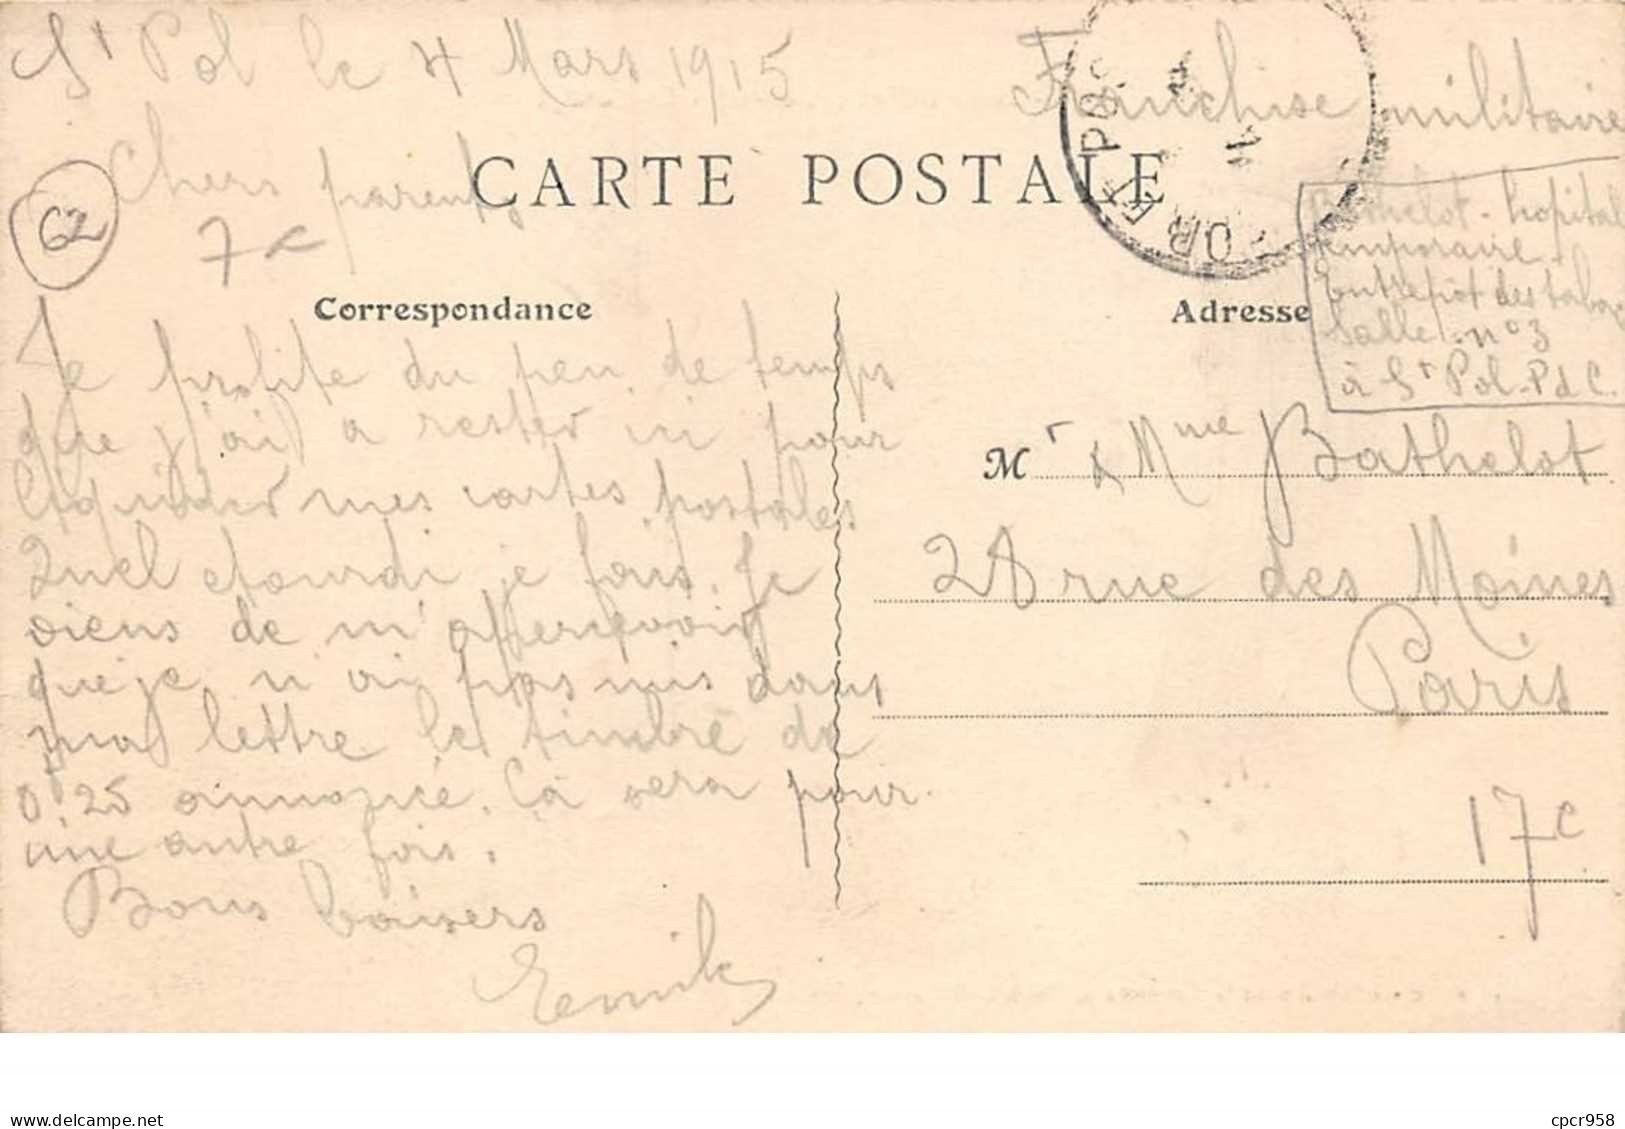 St Pol le 4 Mars 1915
Chers parents
7 c
62
Franchise militaire
CARTE POSTALE
Correspondance
Adresse
Je profite du peu de temps
que j'ai a rester ici pour
liquider mes cartes postales
Quel etourdi je fais. Je
viens de m'appercevoir
que je n'ai pas mis dans
ma lettre le timbre de
0f25 annoncé. Ça sera pour
une autre fois.
Bons baisers
Emile
Bathelot - hopital
temporaire -
Entrepot des tabacs
Salle n°3
à St Pol - P d C.
Mr & Mme Bathelot
28 rue des Moines
Paris
17e
cpcr958
delcampe.net